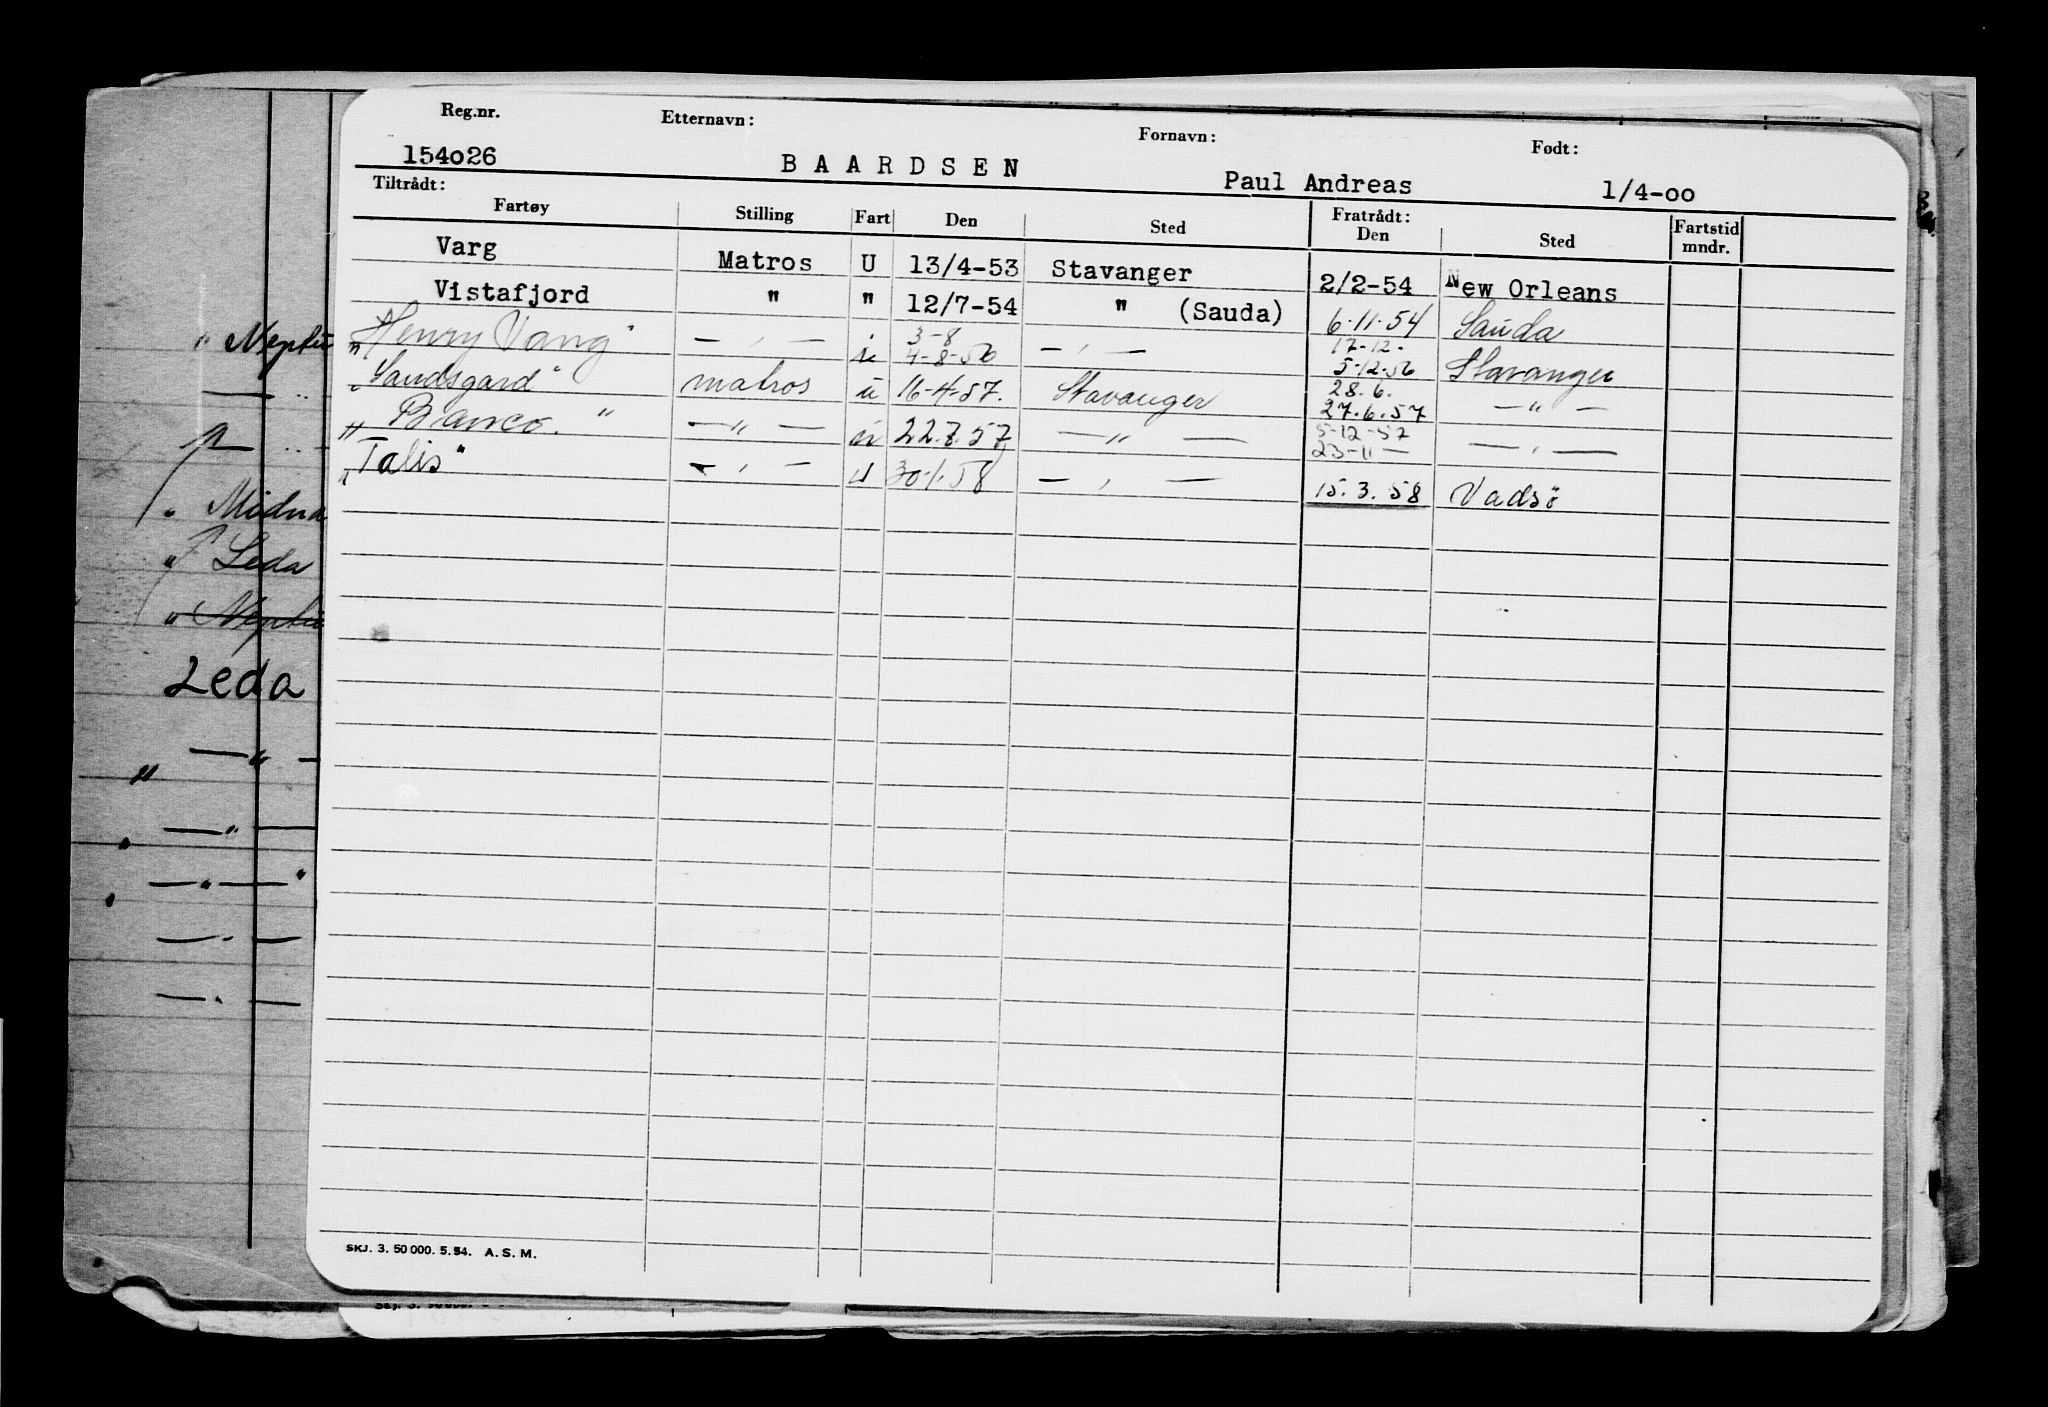 Reg.nr. Etternavn: Fornavn: Født:
154o26 BAARDSEN Paul Andreas 1/4-oo
Tiltrådt: Fratrådt:
Fartøy Stilling Fart Den Sted Den Sted Fartstid mndr.
Varg Matros U 13/4-53 Stavanger 2/2-54 New Orleans
Vistafjord " " 12/7-54 " (Sauda) 6.11.54 Sauda
"Henry Vang" — , — u 3-8 4-8-56 — , — 17-12- 5-12.56 Stavanger
"Sandsgard" matros u 16-4-57. Stavanger 28.6. 27.6.57 — " —
"Banco." — " — u 22.7.57 — " — 5-12-57 23-11— — , —
"Talis" — , — u 30.1.58 — , — 15.3.58 Vadsö
" Neptu
" Midna
" Leda
" Neptu
Leda
— " —
"
— " —
— " — "
— " —
— " —
SKJ. 3. 50 000. 5. 54. A. S. M.